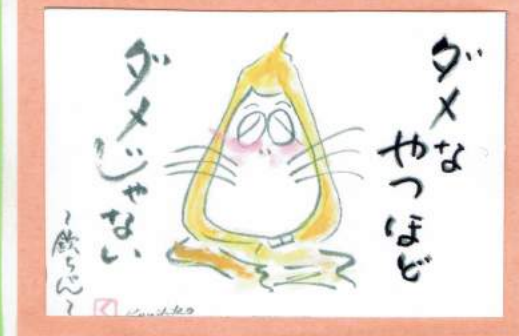 ダメな
やつほど
ダメじゃない
~欽ちゃん~